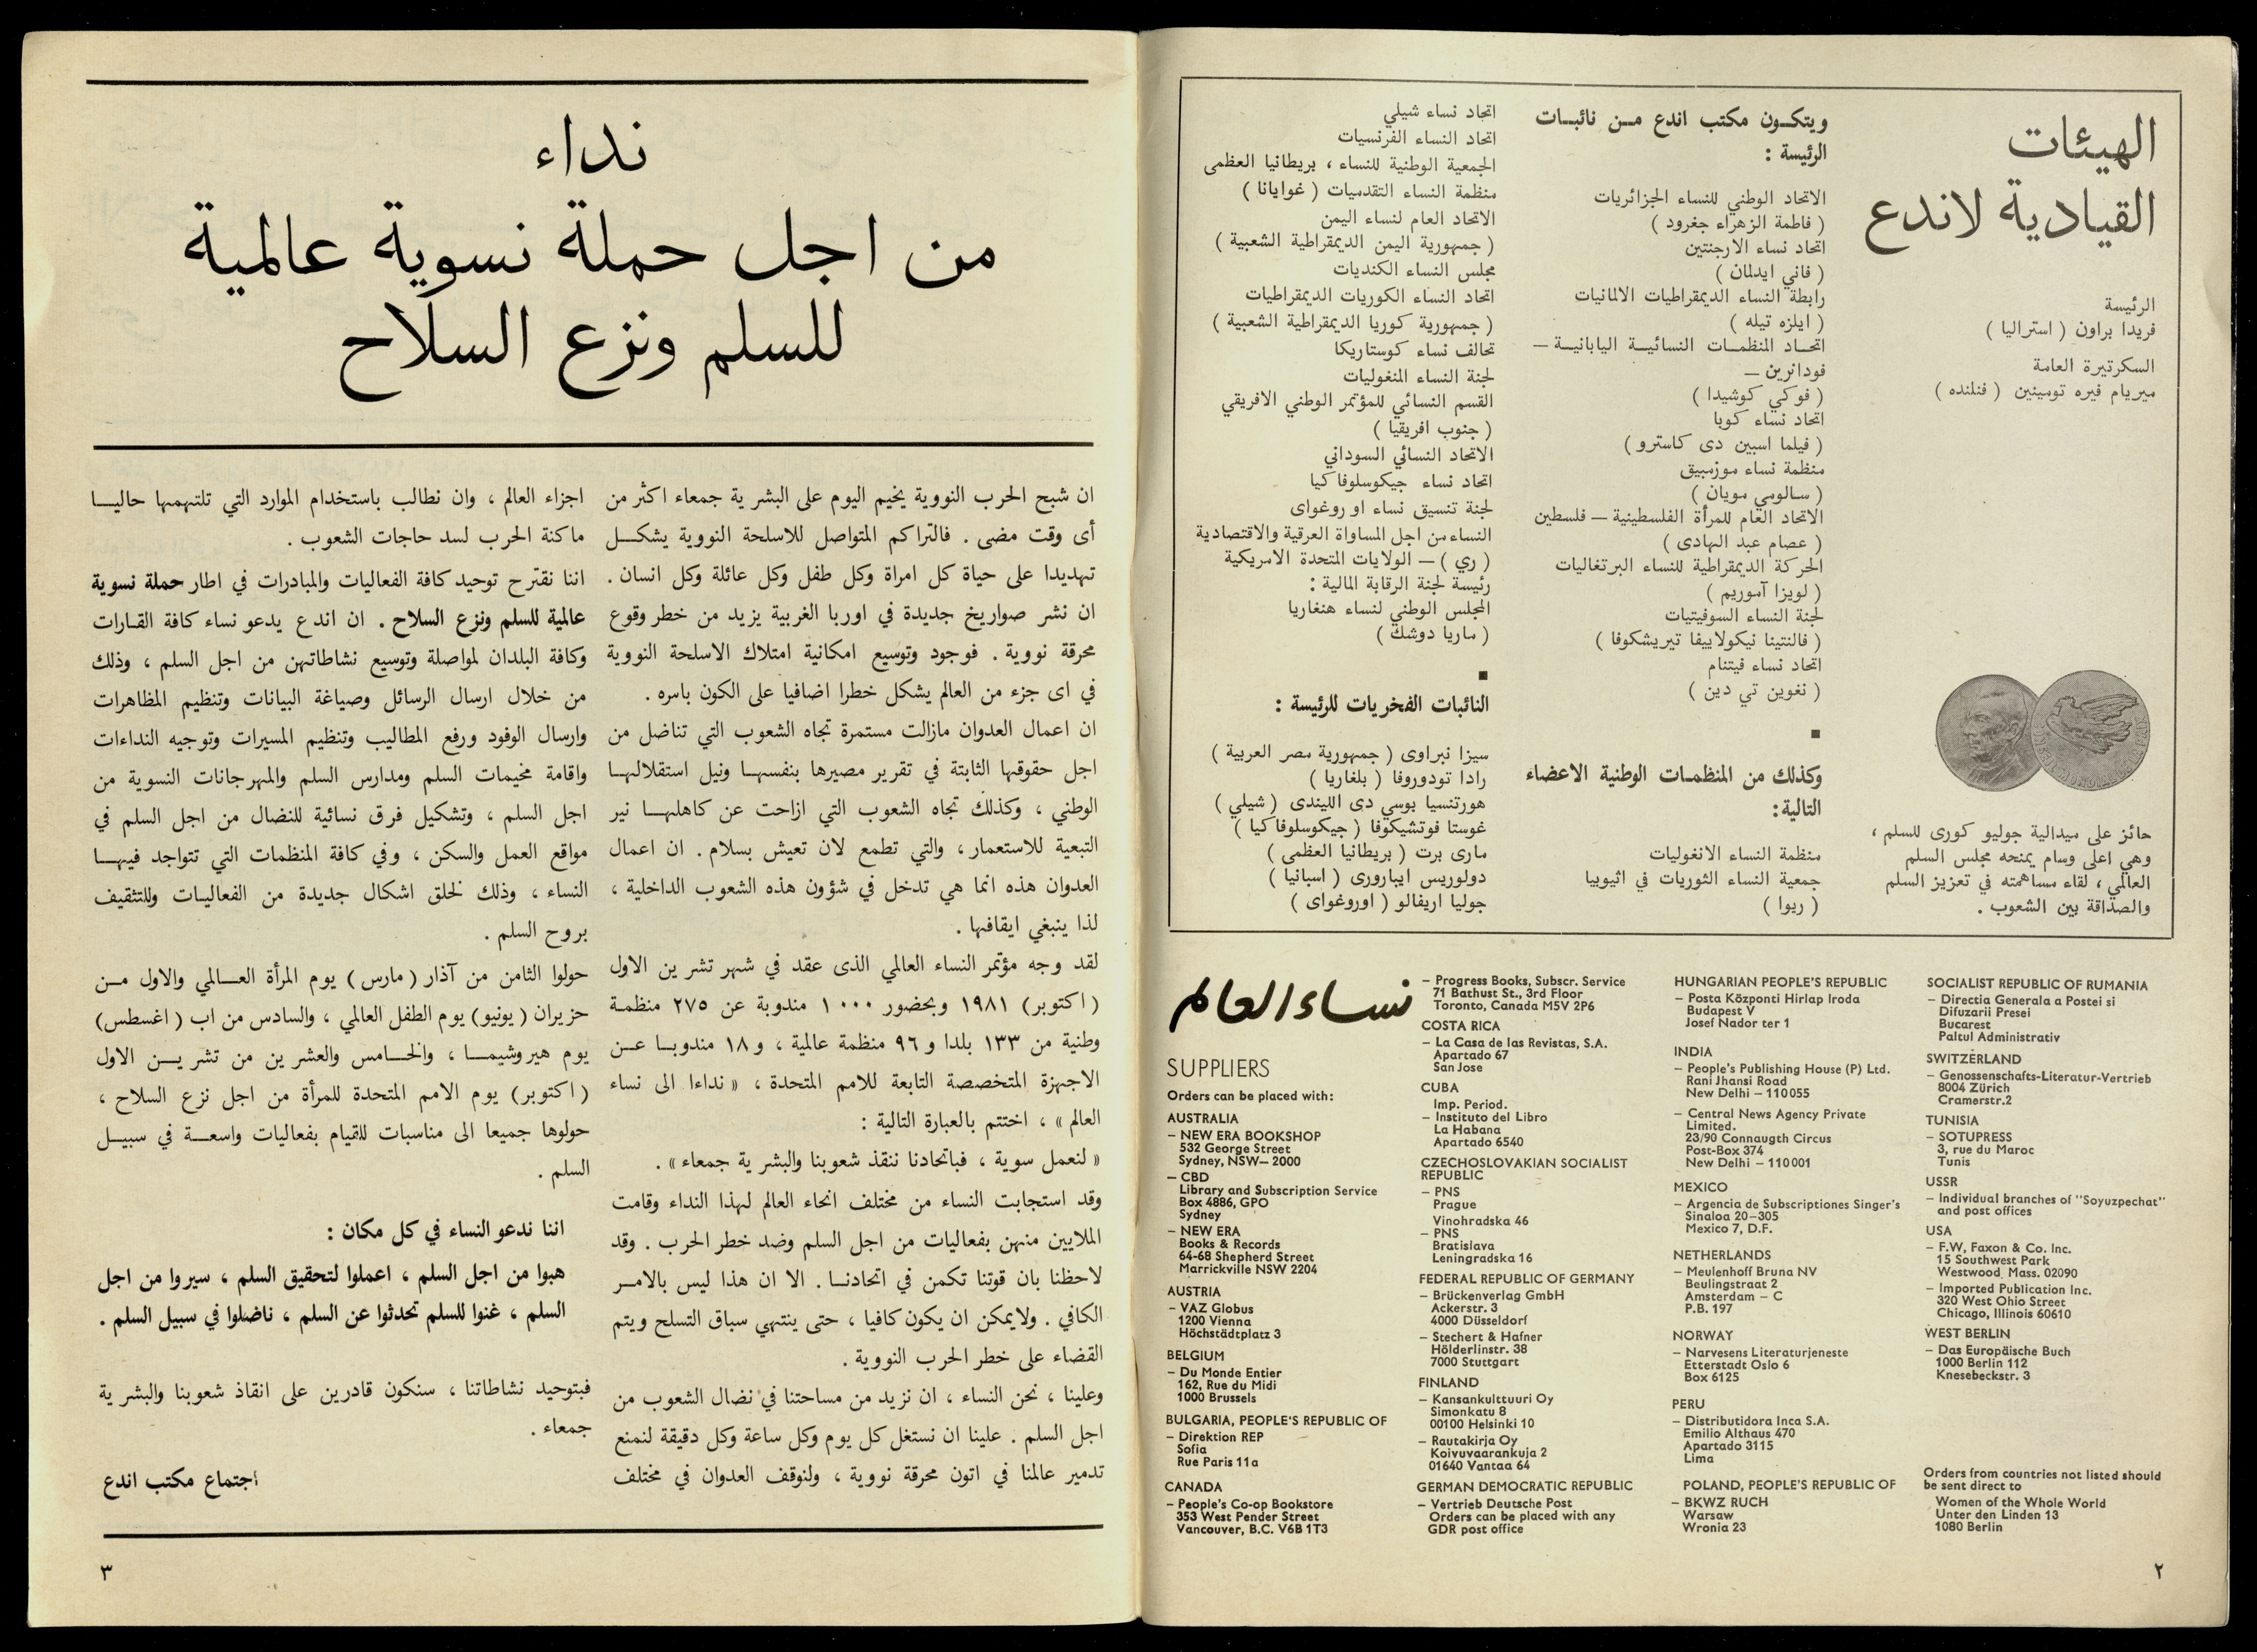 الهيئات
القيادية لاندع
الرئيسة
فريدا براون ( استراليا )
السكرتيرة العامة
ميريام فيره تومينين ( فنلنده )
حائز على ميدالية جوليو كورى للسلم ،
وهي اعلى وسام يمنحه مجلس السلم
العالمي ، لقاء مساهمته في تعزيز السلم
والصداقة بين الشعوب .
ويتكـون مكتب اندع مـن نائبـات
الرئيسة :
الاتحاد الوطني للنساء الجزائريات
( فاطمة الزهراء جغرود )
اتحاد نساء الارجنتين
( فاني ايدلمان )
رابطة النساء الديمقراطيات الالمانيات
( ايلزه تيله )
اتحـاد المنظمـات النسائيـة اليابانيـة —
فودانرين —
( فوكي كوشيدا )
اتحاد نساء كوبا
( فيلما اسبين دى كاسترو )
منظمة نساء موزمبيق
( سالومي مويان )
الاتحاد العام للمرأة الفلسطينية — فلسطين
( عصام عبد الهادى )
الحركة الديمقراطية للنساء البرتغاليات
( لويزا آموريم )
لجنة النساء السوفيتيات
( فالنتينا نيكولاييفا تيريشكوفا )
اتحاد نساء فيتنام
( نغوين تي دين )
■
وكذلك من المنظمـات الوطنية الاعضاء
التالية:
منظمة النساء الانغوليات
جمعية النساء الثوريات في اثيوبيا
( ريوا )
اتحاد نساء شيلي
اتحاد النساء الفرنسيات
الجمعية الوطنية للنساء ، بريطانيا العظمى
منظمة النساء التقدميات ( غوايانا )
الاتحاد العام لنساء اليمن
( جمهورية اليمن الديمقراطية الشعبية )
مجلس النساء الكنديات
اتحاد النساء الكوريات الديمقراطيات
( جمهورية كوريا الديمقراطية الشعبية )
تحالف نساء كوستاريكا
لجنة النساء المنغوليات
القسم النسائي للمؤتمر الوطني الافريقي
( جنوب افريقيا )
الاتحاد النسائي السوداني
اتحاد نساء جيكوسلوفاكيا
لجنة تنسيق نساء اوروغواى
النساء من اجل المساواة العرقية والاقتصادية
( ري ) — الولايات المتحدة الامريكية
رئيسة لجنة الرقابة المالية :
المجلس الوطني لنساء هنغاريا
( ماريا دوشك )
■
النائبات الفخريات للرئيسة :
سيزا نبراوى ( جمهورية مصر العربية )
رادا تودوروفا ( بلغاريا )
هورتنسيا بوسي دى الليندى ( شيلي )
غوستا فوتشيكوفا ( جيكوسلوفاكيا )
مارى برت ( بريطانيا العظمى )
دولوريس ايبارورى ( اسبانيا )
جوليا اريفالو ( اوروغواى )
نساء العالم
SUPPLIERS
Orders can be placed with:
AUSTRALIA
– NEW ERA BOOKSHOP
532 George Street
Sydney, NSW– 2000
– CBD
Library and Subscription Service
Box 4886, GPO
Sydney
– NEW ERA
Books & Records
64-68 Shepherd Street
Marrickville NSW 2204
AUSTRIA
– VAZ Globus
1200 Vienna
Höchstädtplatz 3
BELGIUM
– Du Monde Entier
162, Rue du Midi
1000 Brussels
BULGARIA, PEOPLE'S REPUBLIC OF
– Direktion REP
Sofia
Rue Paris 11a
CANADA
– People's Co-op Bookstore
353 West Pender Street
Vancouver, B.C. V6B 1T3
– Progress Books, Subscr. Service
71 Bathust St., 3rd Floor
Toronto, Canada M5V 2P6
COSTA RICA
– La Casa de las Revistas, S.A.
Apartado 67
San Jose
CUBA
Imp. Period.
– Instituto del Libro
La Habana
Apartado 6540
CZECHOSLOVAKIAN SOCIALIST
REPUBLIC
– PNS
Prague
Vinohradska 46
– PNS
Bratislava
Leningradska 16
FEDERAL REPUBLIC OF GERMANY
– Brückenverlag GmbH
Ackerstr. 3
4000 Düsseldorf
– Stechert & Hafner
Hölderlinstr. 38
7000 Stuttgart
FINLAND
– Kansankulttuuri Oy
Simonkatu 8
00100 Helsinki 10
– Rautakirja Oy
Koivuvaarankuja 2
01640 Vantaa 64
GERMAN DEMOCRATIC REPUBLIC
– Vertrieb Deutsche Post
Orders can be placed with any
GDR post office
HUNGARIAN PEOPLE'S REPUBLIC
– Posta Központi Hirlap Iroda
Budapest V
Josef Nador ter 1
INDIA
– People's Publishing House (P) Ltd.
Rani Jhansi Road
New Delhi – 110055
– Central News Agency Private
Limited.
23/90 Connaugth Circus
Post-Box 374
New Delhi – 110001
MEXICO
– Argencia de Subscriptiones Singer's
Sinaloa 20–305
Mexico 7, D.F.
NETHERLANDS
– Meulenhoff Bruna NV
Beulingstraat 2
Amsterdam – C
P.B. 197
NORWAY
– Narvesens Literaturjeneste
Etterstadt Oslo 6
Box 6125
PERU
– Distributidora Inca S.A.
Emilio Althaus 470
Apartado 3115
Lima
POLAND, PEOPLE'S REPUBLIC OF
– BKWZ RUCH
Warsaw
Wronia 23
SOCIALIST REPUBLIC OF RUMANIA
– Directia Generala a Postei si
Difuzarii Presei
Bucarest
Paltul Administrativ
SWITZERLAND
– Genossenschafts-Literatur-Vertrieb
8004 Zürich
Cramerstr.2
TUNISIA
– SOTUPRESS
3, rue du Maroc
Tunis
USSR
– Individual branches of "Soyuzpechat"
and post offices
USA
– F.W, Faxon & Co. Inc.
15 Southwest Park
Westwood, Mass. 02090
– Imported Publication Inc.
320 West Ohio Street
Chicago, Illinois 60610
WEST BERLIN
– Das Europäische Buch
1000 Berlin 112
Knesebeckstr. 3
Orders from countries not listed should
be sent direct to
Women of the Whole World
Unter den Linden 13
1080 Berlin
٢
نداء
من اجل حملة نسوية عالمية
للسلم ونزع السلاح
ان شبح الحرب النووية يخيم اليوم على البشرية جمعاء اكثر من
أى وقت مضى . فالتراكم المتواصل للاسلحة النووية يشكـل
تهديدا على حياة كل امراة وكل طفل وكل عائلة وكل انسان .
ان نشر صواريخ جديدة في اوربا الغربية يزيد من خطر وقوع
محرقة نووية . فوجود وتوسيع امكانية امتلاك الاسلحة النووية
في اى جزء من العالم يشكل خطرا اضافيا على الكون باسره .
ان اعمال العدوان مازالت مستمرة تجاه الشعوب التي تناضل من
اجل حقوقها الثابتة في تقرير مصيرها بنفسهـا ونيل استقلالهـا
الوطني ، وكذلك تجاه الشعوب التي ازاحت عن كاهلهـا نير
التبعية للاستعمار ، والتي تطمع لان تعيش بسلام . ان اعمال
العدوان هذه انما هي تدخل في شؤون هذه الشعوب الداخلية ،
لذا ينبغي ايقافها .
لقد وجه مؤتمر النساء العالمي الذى عقد في شهر تشرين الاول
( اكتوبر ) ١٩٨١ وبحضور ١٠٠٠ مندوبة عن ٢٧٥ منظمـة
وطنية من ١٣٣ بلدا و ٩٦ منظمة عالمية ، و ١٨ مندوبـا عـن
الاجهزة المتخصصة التابعة للامم المتحدة ، « نداءا الى نساء
العالم » ، اختتم بالعبارة التالية :
« لنعمل سوية ، فباتحادنا ننقذ شعوبنا والبشرية جمعاء » .
وقد استجابت النساء من مختلف انحاء العالم لهذا النداء وقامت
الملايين منهن بفعاليات من اجل السلم وضد خطر الحرب . وقد
لاحظنا بان قوتنا تكمن في اتحادنـا . الا ان هذا ليس بالامـر
الكافي . ولايمكن ان يكون كافيا ، حتى ينتهي سباق التسلح ويتم
القضاء على خطر الحرب النووية .
وعلينا ، نحن النساء ، ان نزيد من مساحتنا في نضال الشعوب من
اجل السلم . علينا ان نستغل كل يوم وكل ساعة وكل دقيقة لنمنع
تدمير عالمنا في اتون محرقة نووية ، ولنوقف العدوان في مختلف
اجزاء العالم ، وان نطالب باستخدام الموارد التي تلتهمها حاليـا
ماكنة الحرب لسد حاجات الشعوب .
اننا نقترح توحيد كافة الفعاليات والمبادرات في اطار حملة نسوية
عالمية للسلم ونزع السلاح . ان اندع يدعو نساء كافة القـارات
وكافة البلدان لمواصلة وتوسيع نشاطاتهن من اجل السلم ، وذلك
من خلال ارسال الرسائل وصياغة البيانات وتنظيم المظاهرات
وارسال الوفود ورفع المطاليب وتنظيم المسيرات وتوجيه النداءات
واقامة مخيمات السلم ومدارس السلم والمهرجانات النسوية من
اجل السلم ، وتشكيل فرق نسائية للنضال من اجل السلم في
مواقع العمل والسكن ، وفي كافة المنظمات التي تتواجد فيهـا
النساء ، وذلك لخلق اشكال جديدة من الفعاليـات وللتثقيف
بروح السلم .
حولوا الثامن من آذار ( مارس ) يوم المرأة العـالمي والاول مـن
حزيران ( يونيو ) يوم الطفل العالمي ، والسادس من اب ( اغسطس )
يوم هيروشيمـا ، والخـامس والعشرين من تشريـن الاول
( اكتوبر ) يوم الامم المتحدة للمرأة من اجل نزع السلاح ،
حولوها جميعا الى مناسبات للقيام بفعاليات واسعـة في سبيـل
السلم .
اننا ندعو النساء في كل مكان :
هبوا من اجل السلم ، اعملوا لتحقيق السلم ، سيروا من اجل
السلم ، غنوا للسلم تحدثوا عن السلم ، ناضلوا في سبيل السلم .
فبتوحيد نشاطاتنا ، سنكون قادرين على انقاذ شعوبنا والبشرية
جمعاء .
اجتماع مكتب اندع
٣